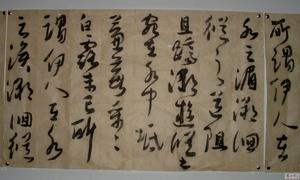 所謂伊人在
水之湄溯洄
從之道阻
且躋溯游從之
宛在水中坻
蒹葭采采
白露未已所
謂伊人在水
之涘溯洄從